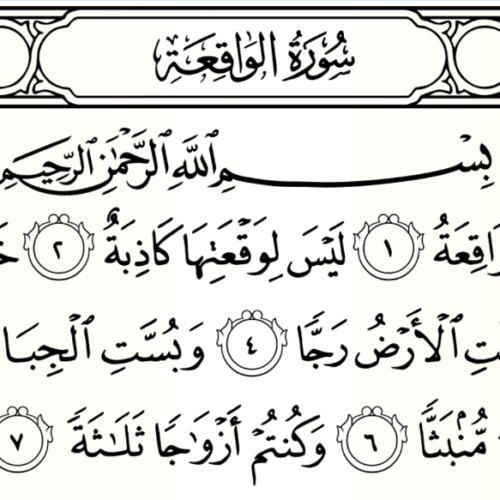 سُورَةُ الوَاقِعَةِ
بِسْمِ ٱللَّهِ ٱلرَّحْمَٰنِ ٱلرَّحِيمِ
لَيْسَ لِوَقْعَتِهَا كَاذِبَةٌ ٢
ٱلْأَرْضُ رَجًّا ٤ وَبُسَّتِ
مُّنۢبَثًّا ٦ وَكُنتُمْ أَزْوَٰجًا ثَلَٰثَةً ٧